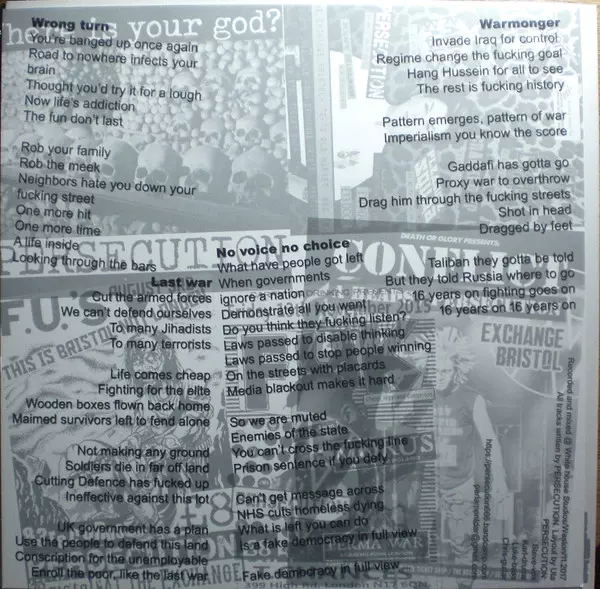 Wrong turn
You're banged up once again
Road to nowhere infects your
brain
Thought you'd try it for a lough
Now life's addiction
The fun don't last
Rob your family
Rob the meek
Neighbors hate you down your
fucking street
One more hit
One more time
A life inside
Looking through the bars
Last war
Cut the armed forces
We can't defend ourselves
To many Jihadists
To many terrorists
Life comes cheap
Fighting for the elite
Wooden boxes flown back home
Maimed survivors left to fend alone
Not making any ground
Soldiers die in far off land
Cutting Defence has fucked up
Ineffective against this lot
UK government has a plan
Use the people to defend this land
Conscription for the unemployable
Enroll the poor, like the last war
No voice no choice
What have people got left
When governments
ignore a nation
Demonstrate all you want
Do you think they fucking listen?
Laws passed to disable thinking
Laws passed to stop people winning
On the streets with placards
Media blackout makes it hard
So we are muted
Enemies of the state
You can't cross the fucking line
Prison sentence if you defy
Can't get message across
NHS cuts homeless dying
What is left you can do
Is a fake democracy in full view
Fake democracy in full view
Warmonger
Invade Iraq for control
Regime change the fucking goal
Hang Hussein for all to see
The rest is fucking history
Pattern emerges, pattern of war
Imperialism you know the score
Gaddafi has gotta go
Proxy war to overthrow
Drag him through the fucking streets
Shot in head
Dragged by feet
Taliban they gotta be told
But they told Russia where to go
16 years on fighting goes on
16 years on 16 years on
is your god?
PERSECUTION
PERSECUTION
DEATH OR GLORY PRESENTS:
CON
F.U.'S
AUGUS
2015
THIS IS BRISTOL
EXCHANGE
BRISTOL
PERMA WAR
THE EXCHANGE
399 High Rd, London N17 6QN
Recorded and mixed @ White House Studios/Weston/11.2017
All tracks written by PERSECUTION. Layout by
PERSECUTION: